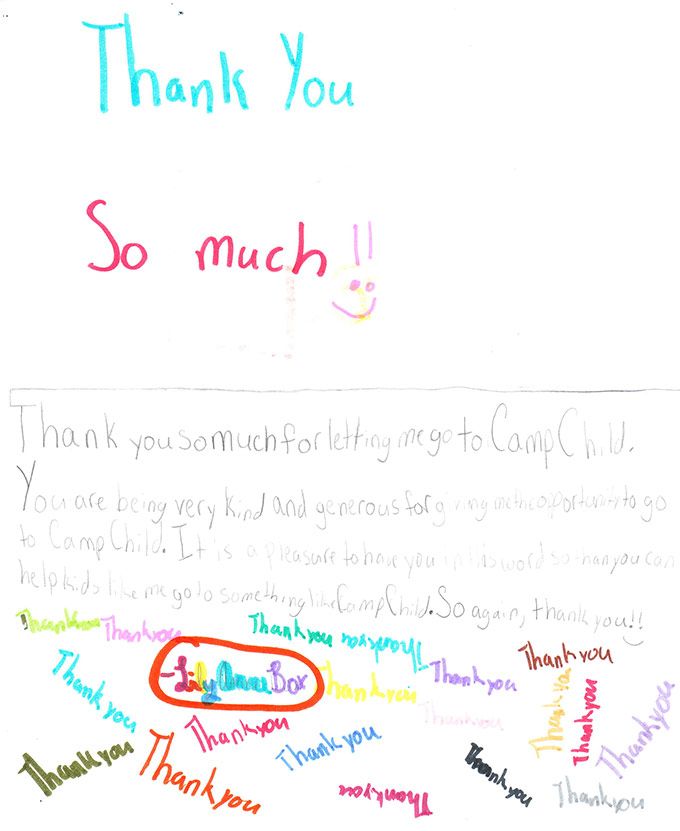 Thank You
So much!!
Thank you so much for letting me go to Camp Child.
You are being very kind and generous for giving me the opportunity to go
to Camp Child. It is a pleasure to have you in this word so than you can
help kids like me go to something like Camp Child. So again, thank you!!
Thank you Thank you Thank you Thank you
-Lily Anna Box Thank you Thank you Thank you
Thank you Thank you Thank you Thank you Thank you Thank you
Thank you Thank you Thank you
Thank you Thank you Thank you Thank you